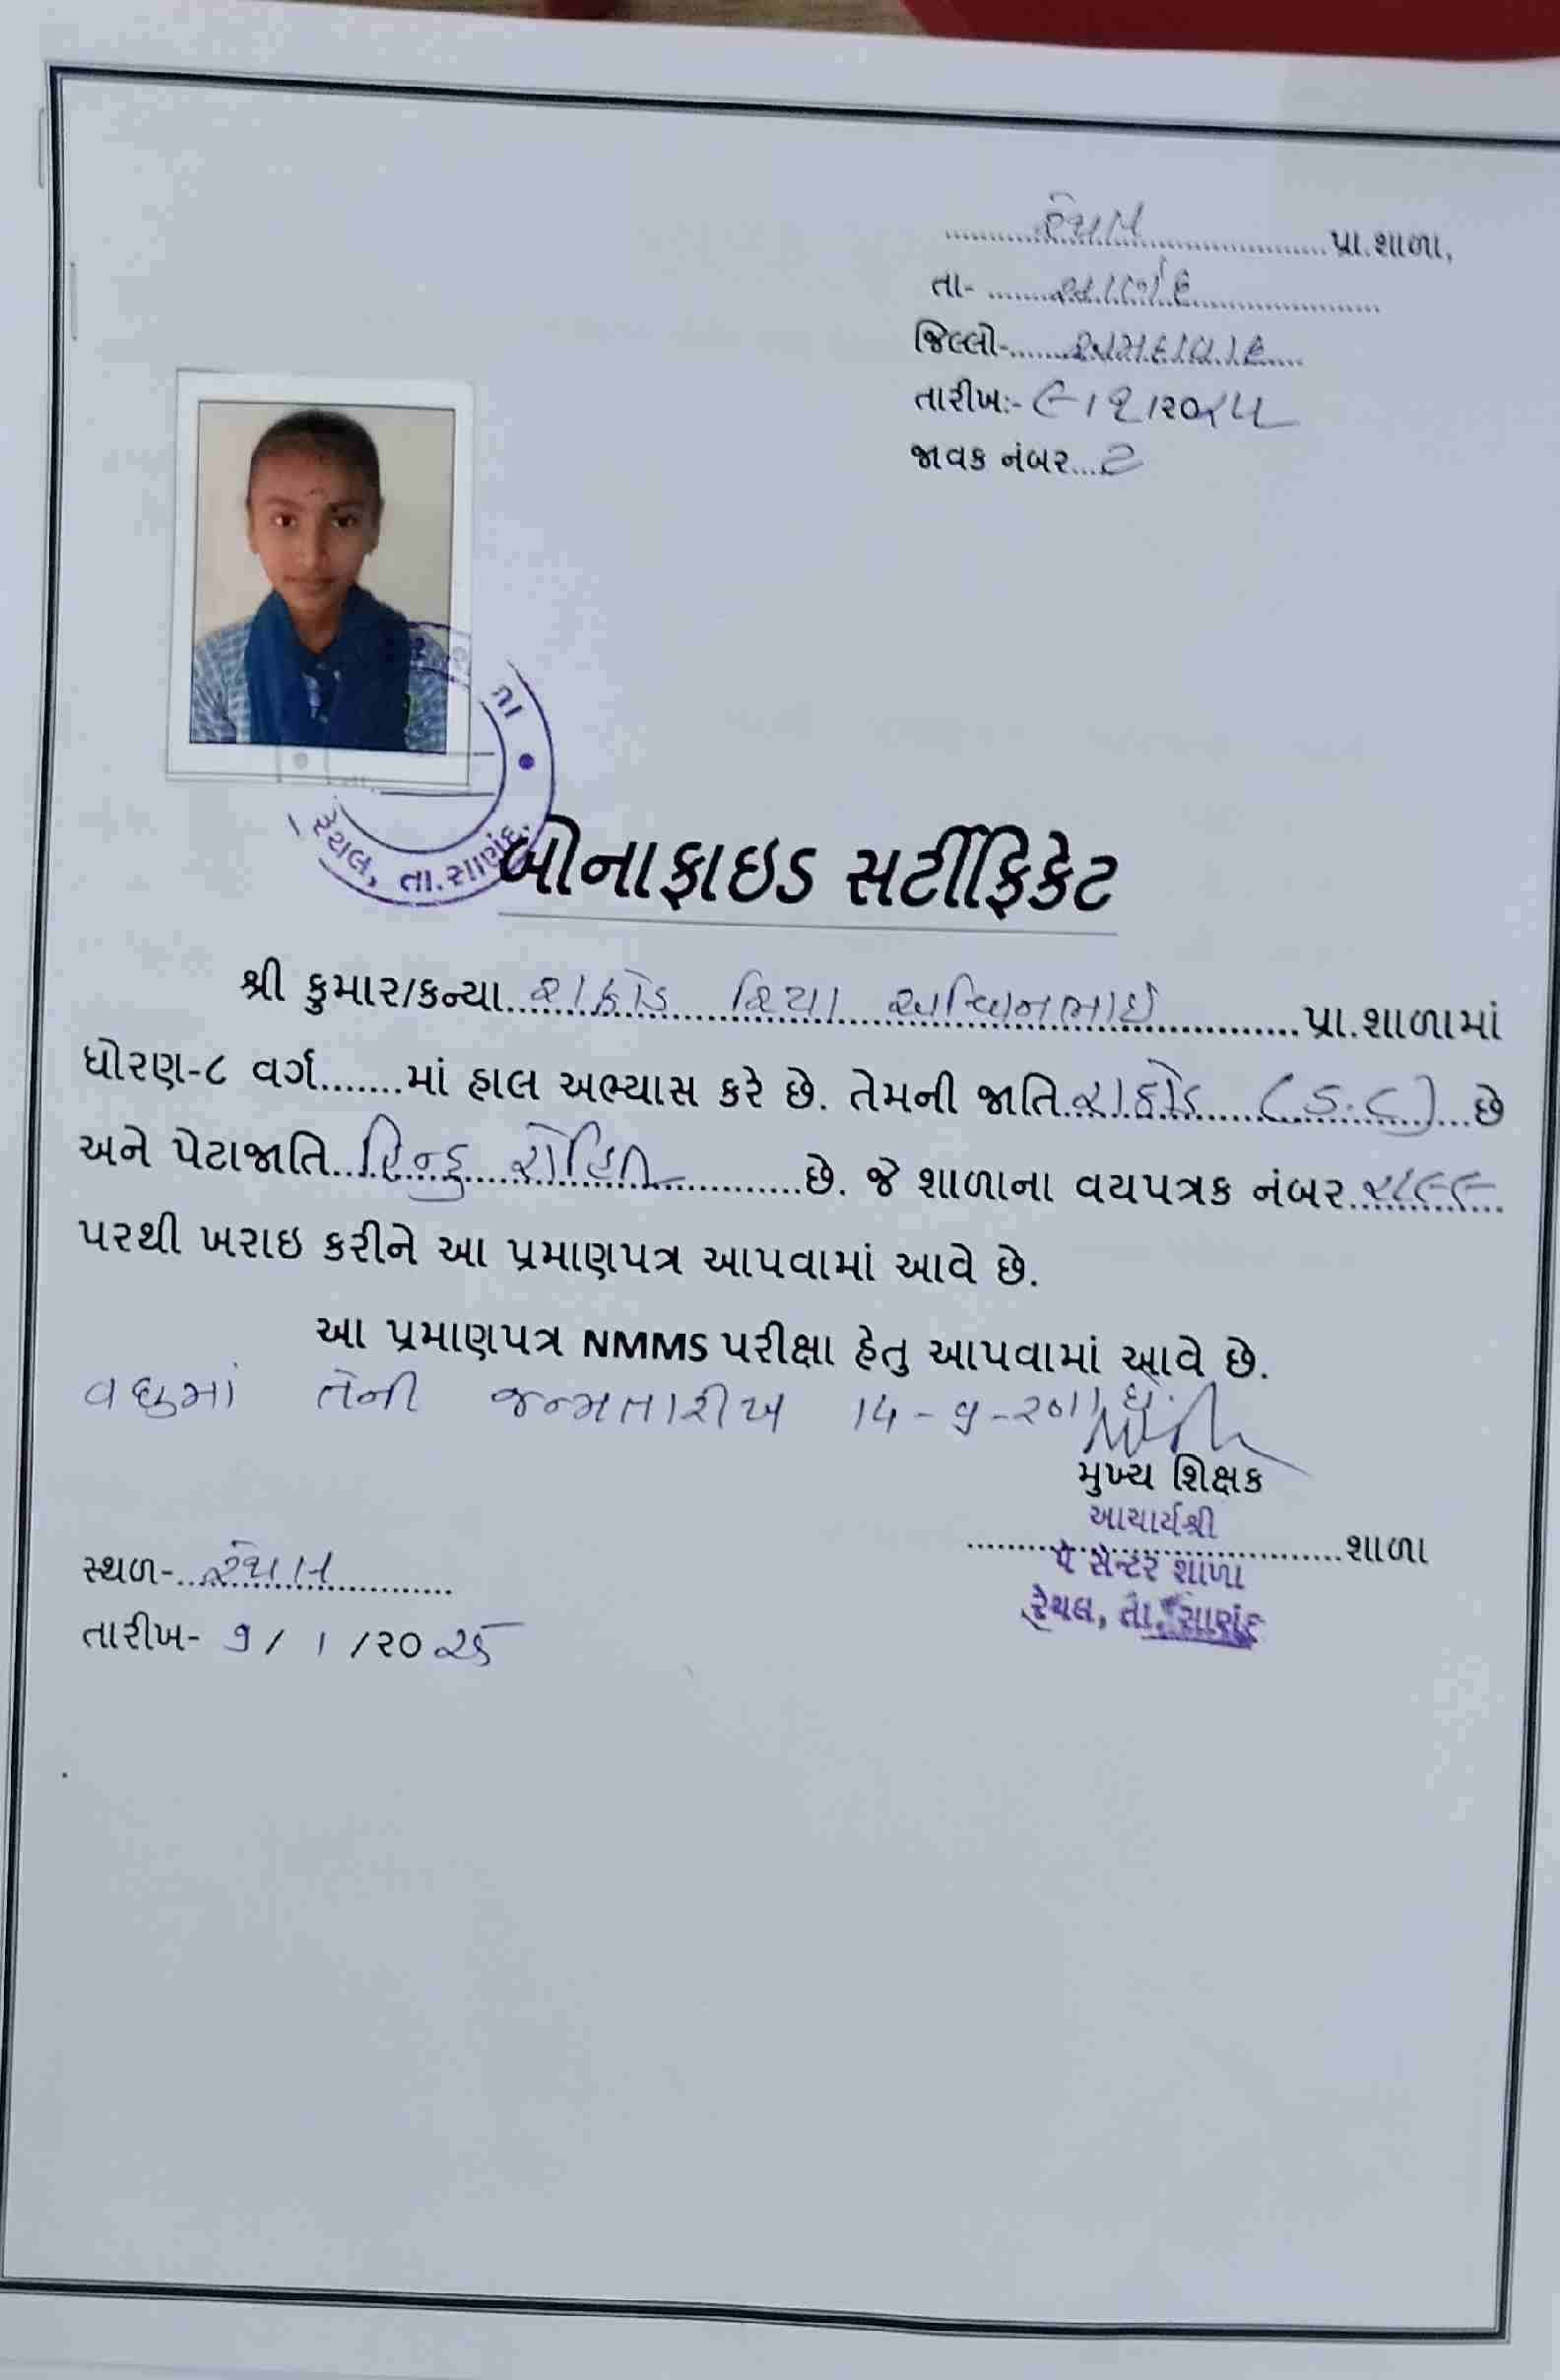 રેથલ પ્રા.શાળા,
તા- સાણંદ
જિલ્લો- અમદાવાદ
તારીખઃ- ૯/૧/૨૦૨૫
જાવક નંબર...
તા
રેથલ, તા.સાણંદ.
બોનાફાઇડ સર્ટીફિકેટ
શ્રી કુમાર/કન્યા રાઠોડ રિયા અશ્વિનભાઈ પ્રા.શાળામાં
ધોરણ-૮ વર્ગ.......માં હાલ અભ્યાસ કરે છે. તેમની જાતિ રાઠોડ (S.C) છે
અને પેટાજાતિ હિન્દુ રોહિત છે. જે શાળાના વયપત્રક નંબર
પરથી ખરાઇ કરીને આ પ્રમાણપત્ર આપવામાં આવે છે.
આ પ્રમાણપત્ર NMMS પરીક્ષા હેતુ આપવામાં આવે છે.
વધુમાં તેની જન્મતારીખ છે.
મુખ્ય શિક્ષક
આચાર્યશ્રી
શાળા
પે સેન્ટર શાળા
રેથલ, તા. સાણંદ
સ્થળ- રેથલ
તારીખ- ૧/ ૧ /૨૦૨૫